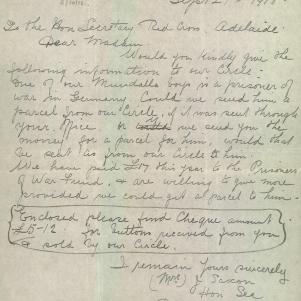 Sept 12th 1918.
To the Hon Secretary Red Cross, Adelaide
Dear Madam
Would you kindly give the
following information to our Circle.
One of our Mundalla boys is a prisoner of
war in Germany. Could we send him a
parcel from our Circle, if it was sent through
your Office, or could we send you the
money for a parcel for him, would that
be sent as from our Circle to him.
We have paid £17 this year to the Prisoners
of War Fund, & are willing to give more
provided we could get a parcel to him.
Enclosed please find Cheque amount
£5-12 for buttons received from you
& sold by our Circle.
I remain Yours sincerely
(Mrs) J. Saxon
Hon Sec